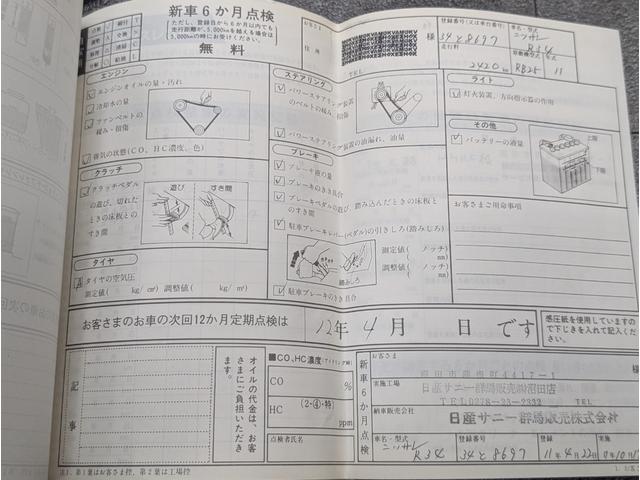 新車6か月点検
ただし、登録日から6か月以内でも
走行距離が5,000kmを越える場合は
5,000kmの時にお受けください。
無料
お客さま
住所
TEL
様
登録番号(又は車台番号)
34と8697
走行距離
2420km
ニッサン
R34
RB25
11
エンジン
エンジンオイルの量・汚れ
冷却水の量
ファンベルトの
緩み・損傷
排気の状態(CO、HC濃度、色)
クラッチ
クラッチペダル
の遊び、切れた
ときの床板との
すき間
遊び
すき間
タイヤ
タイヤの空気圧
測定値( kg/cm²) 調整値( kg/cm²)
ステアリング
パワーステアリング装置
のベルトの緩み・
損傷
パワーステアリング装置の油漏れ、油量
ブレーキ
ブレーキ液の量
ブレーキのきき具合
ブレーキペダルの遊び、踏み込んだときの床板と
のすき間
駐車ブレーキレバー(ペダル)の引きしろ(踏みしろ)
測定値( ノッチ)
mm
調整値( ノッチ)
mm
駐車ブレーキのきき具合
ライト
灯火装置、方向指示器の作用
その他
バッテリーの液量
上限
下限
お客さまご用命事項
お客さまのお車の次回12か月定期点検は
12年 4月 日です
感圧紙を使用していますの
で下じきを入れて記入くだ
さい。
記事
オイルの代金は、お客
さまにご負担いただき
ます。
■CO、HC濃度(アイドリング時)
CO
%
HC
(2・④・特)
ppm
点検者氏名
新車6か月点検
お客さま
様
4417-1
実施工場
日産サニー群馬販売㈱沼田店
TEL0278-23-2332
TEL
納車販売会社
日産サニー群馬販売株式会社
車名・型式
ニッサン
R34
登録番号
34と8697
登録日
11年4月22日
実施日
注1.第1葉はお客さま控、第2葉は工場控
1.お客さま